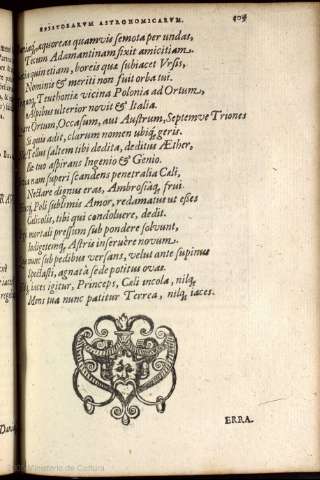 EPISTOLARVM ASTRONOMICARVM. 309
æquoreas quamvis semota per undas,
Tecum Adamantinam fixit amicitiam.
quin etiam, boreis quæ subiacet Vrsis,
Nominis & meriti non fuit orba tui.
Teuthoniæ vicina Polonia ad Ortum,
Alpibus ulterior novit & Italia.
Ortum, Occasum, aut Austrum, Septemve Triones
Si quis adit, clarum nomen ubiq; geris.
Tellus saltem tibi dedita, deditus Æther,
Est tuo aspirans Ingenio & Genio.
nam superi scandens penetralia Cæli,
Nectare dignus eras, Ambrosiaq; frui.
Poli sublimis Amor, redamatus ut esses
Cælicolis, tibi qui condoluere, dedit.
mortali pressum sub pondere solvunt,
Indigetemq; Astris inseruêre novum.
nunc sub pedibus versans, velut ante supinus
Spectasti, agnata sede potitus ovas.
iaces igitur, Princeps, Cæli incola, nilq;
Mens tua nunc patitur Terrea, nilq; iaces.
ERRA.
Ministerio de Cultura